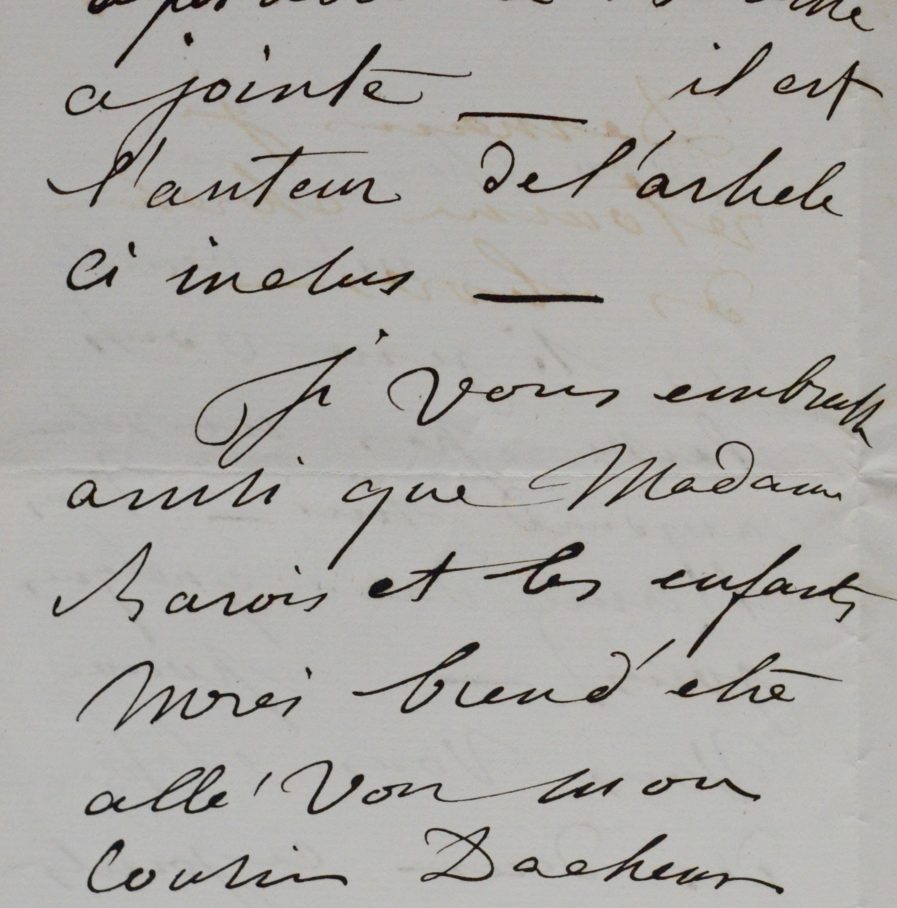 ajointe — il est
l'auteur de l'article
ci inclus —
Je vous embrasse
ainsi que Madame
et les enfants
Merci bien d'être
allé voir mon
Cousin Dacheux